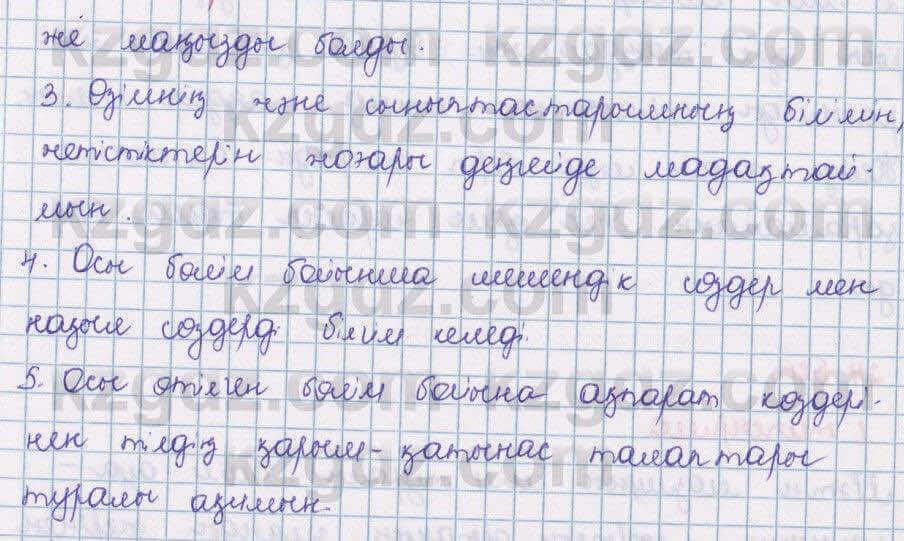 же маңызды болды.
3. Өзімнің және сыныптастарымның білімін,
жетістіктерін жоғары деңгейде мадақтай-
мын.
4. Осы бөлім бойынша шешендік сөздер мен
нақыл сөздерді білгім келеді.
5. Осы өтілген бөлім бойына ақпарат көздері-
нен тілдің қарым-қатынас талаптары
туралы аламын.